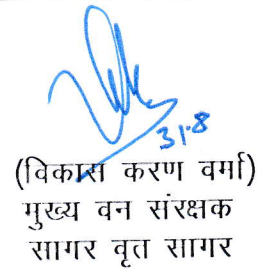 31-8
(विकास करण वर्मा)
मुख्य वन संरक्षक
सागर वृत सागर